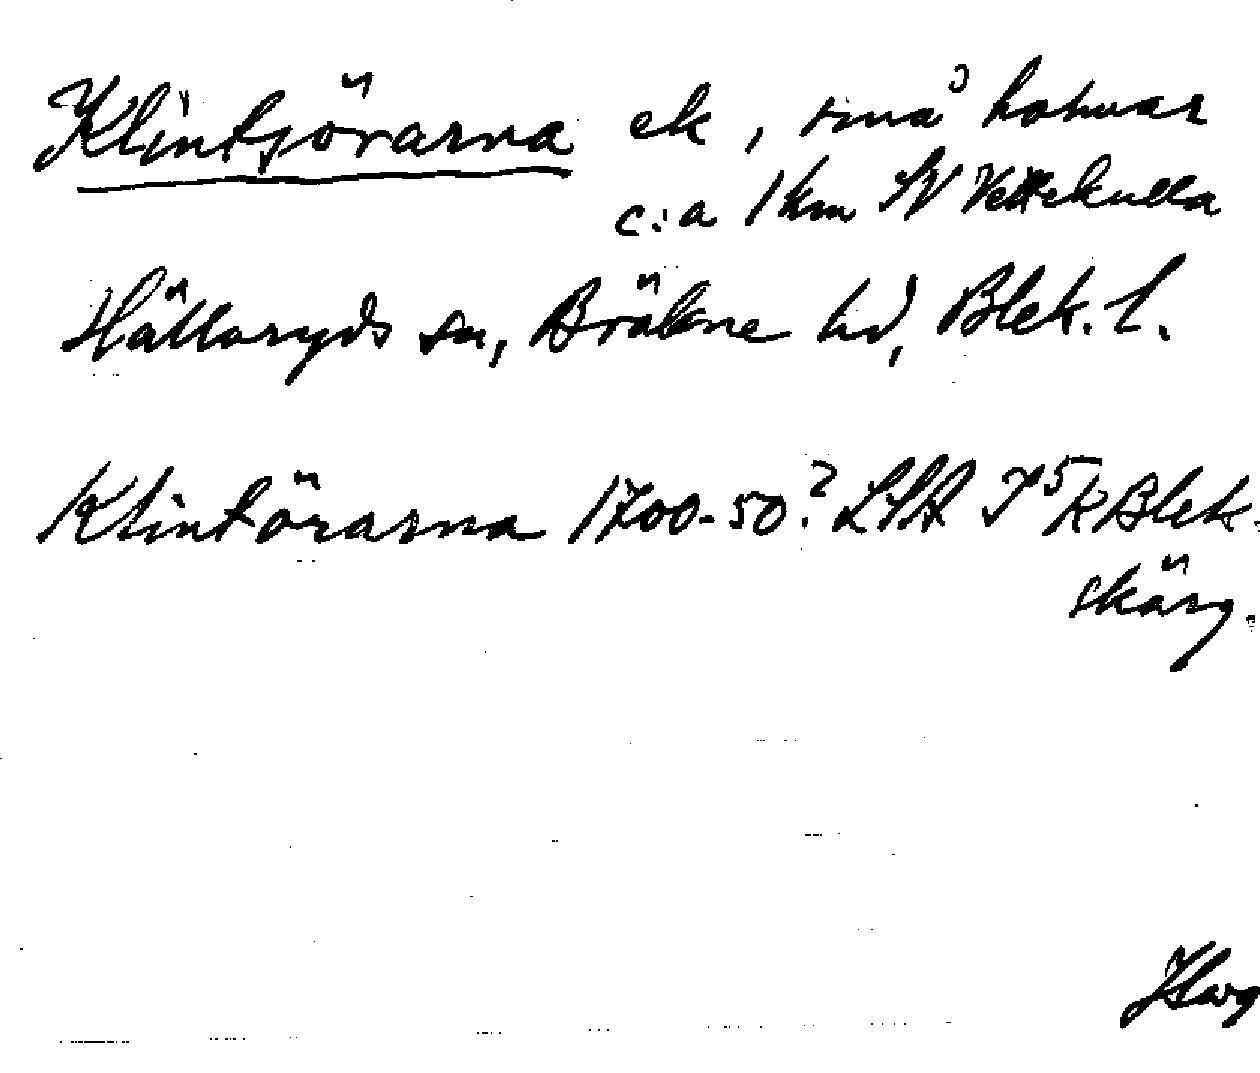 Klintjörarna ek, små holmar
c:a 1 km SV Vettekulla
Hällaryds sn, Bräkne hd, Blek. l.
Klintörarna 1700-50? LSA Blek.
skärg.